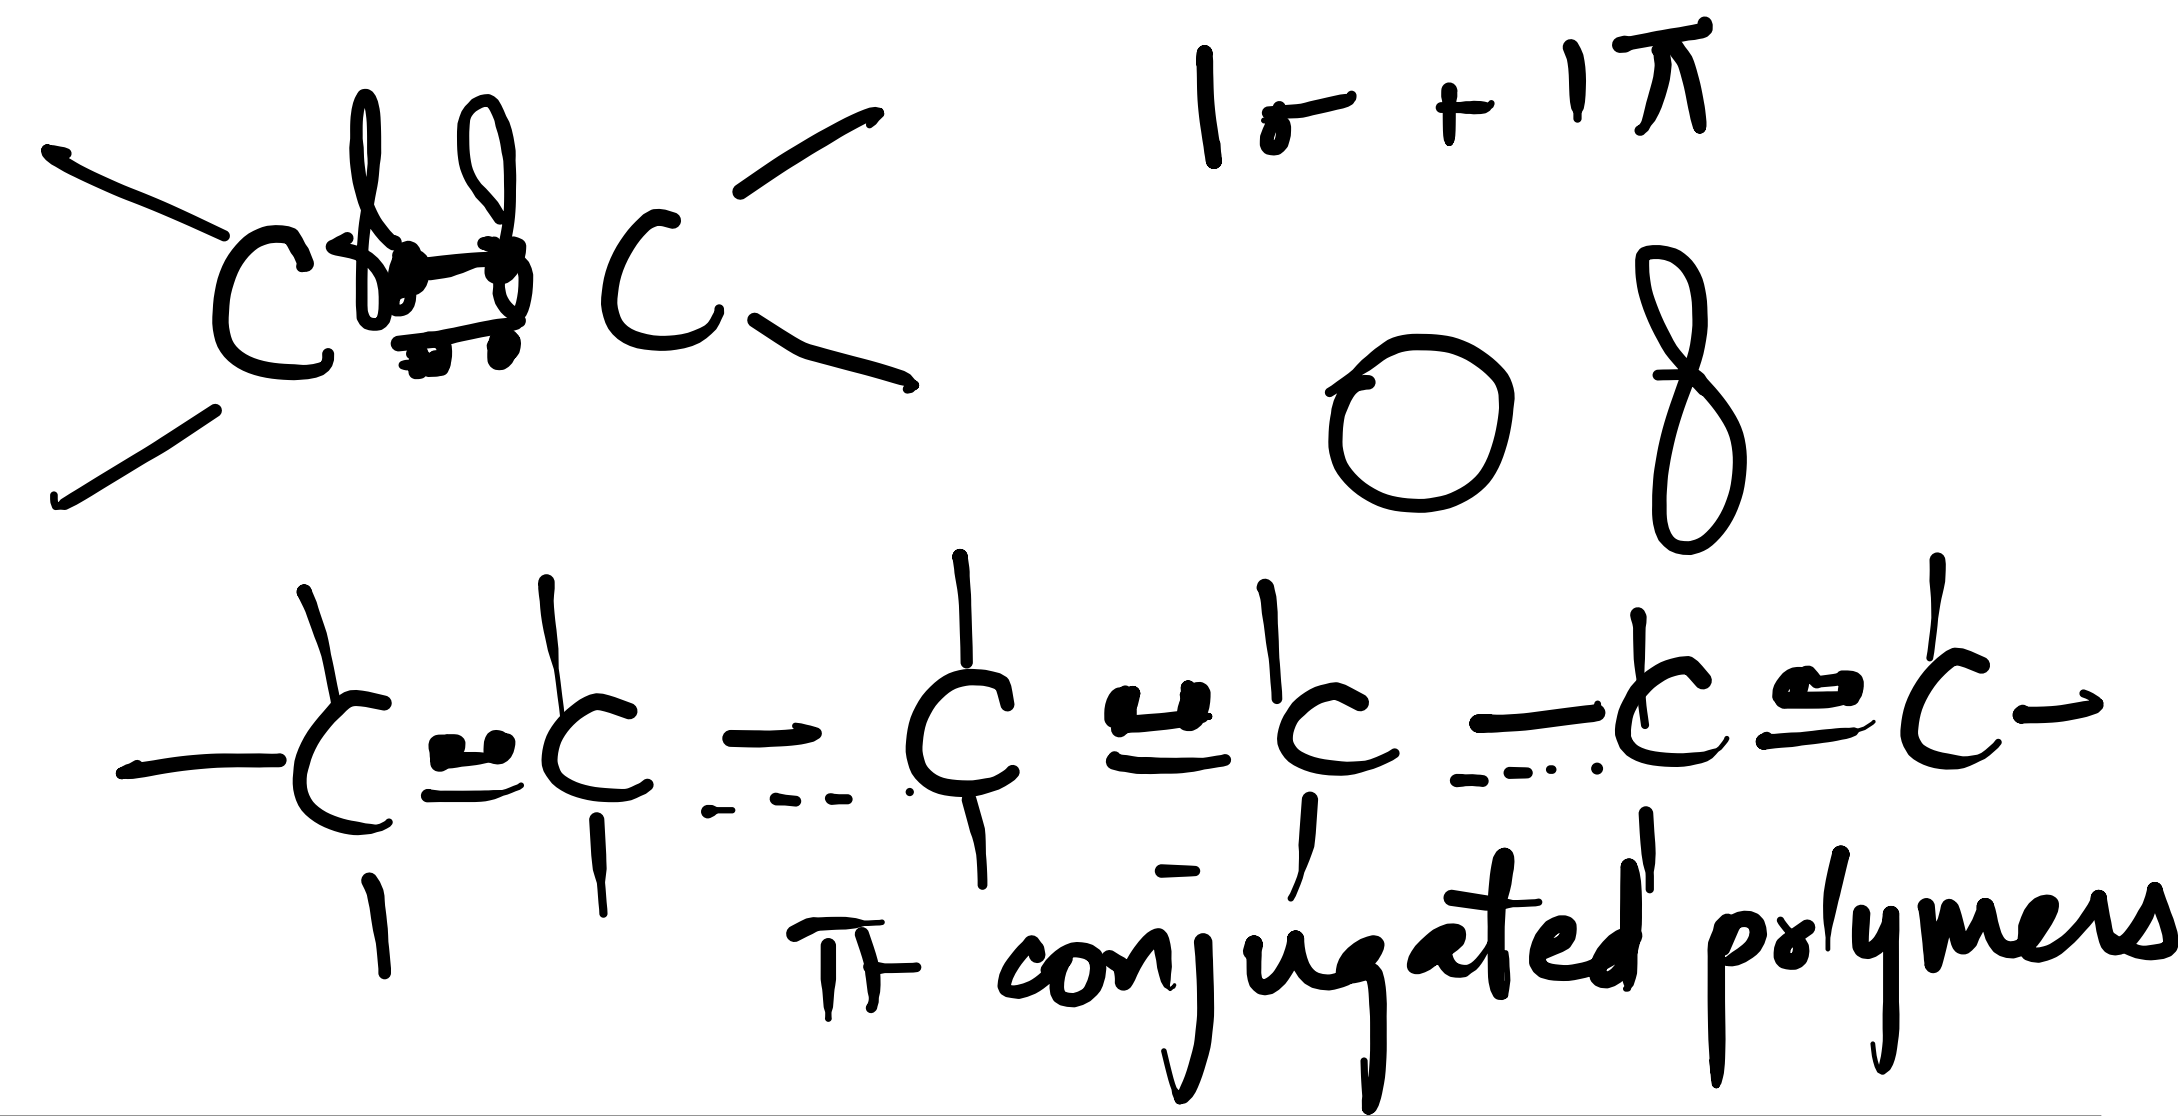 1σ + 1π
C C
C = C — C = C — C = C —
π- conjugated polymers